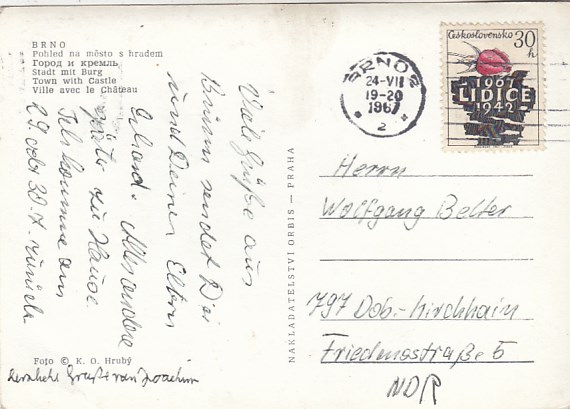 BRNO
Pohled na město s hradem
Город и кремль
Stadt mit Burg
Town with Castle
Ville avec le Château
Viele Grüße aus
Brünn sendet Dir
und Deinen Eltern
Alles andere
später zu Hause.
Ich komme am
29. oder 30.7. zurück
Foto © K. O. Hrubý
Herzliche Grüße von Joachim
NAKLADATELSTVÍ ORBIS — PRAHA
BRNO 2
24-VII
19-20
1967
2
Československo 30 h
1967
LIDICE
1942
Herrn
Wolfgang Belter
797 Dob.-Kirchhain
Friedensstraße 5
NDR